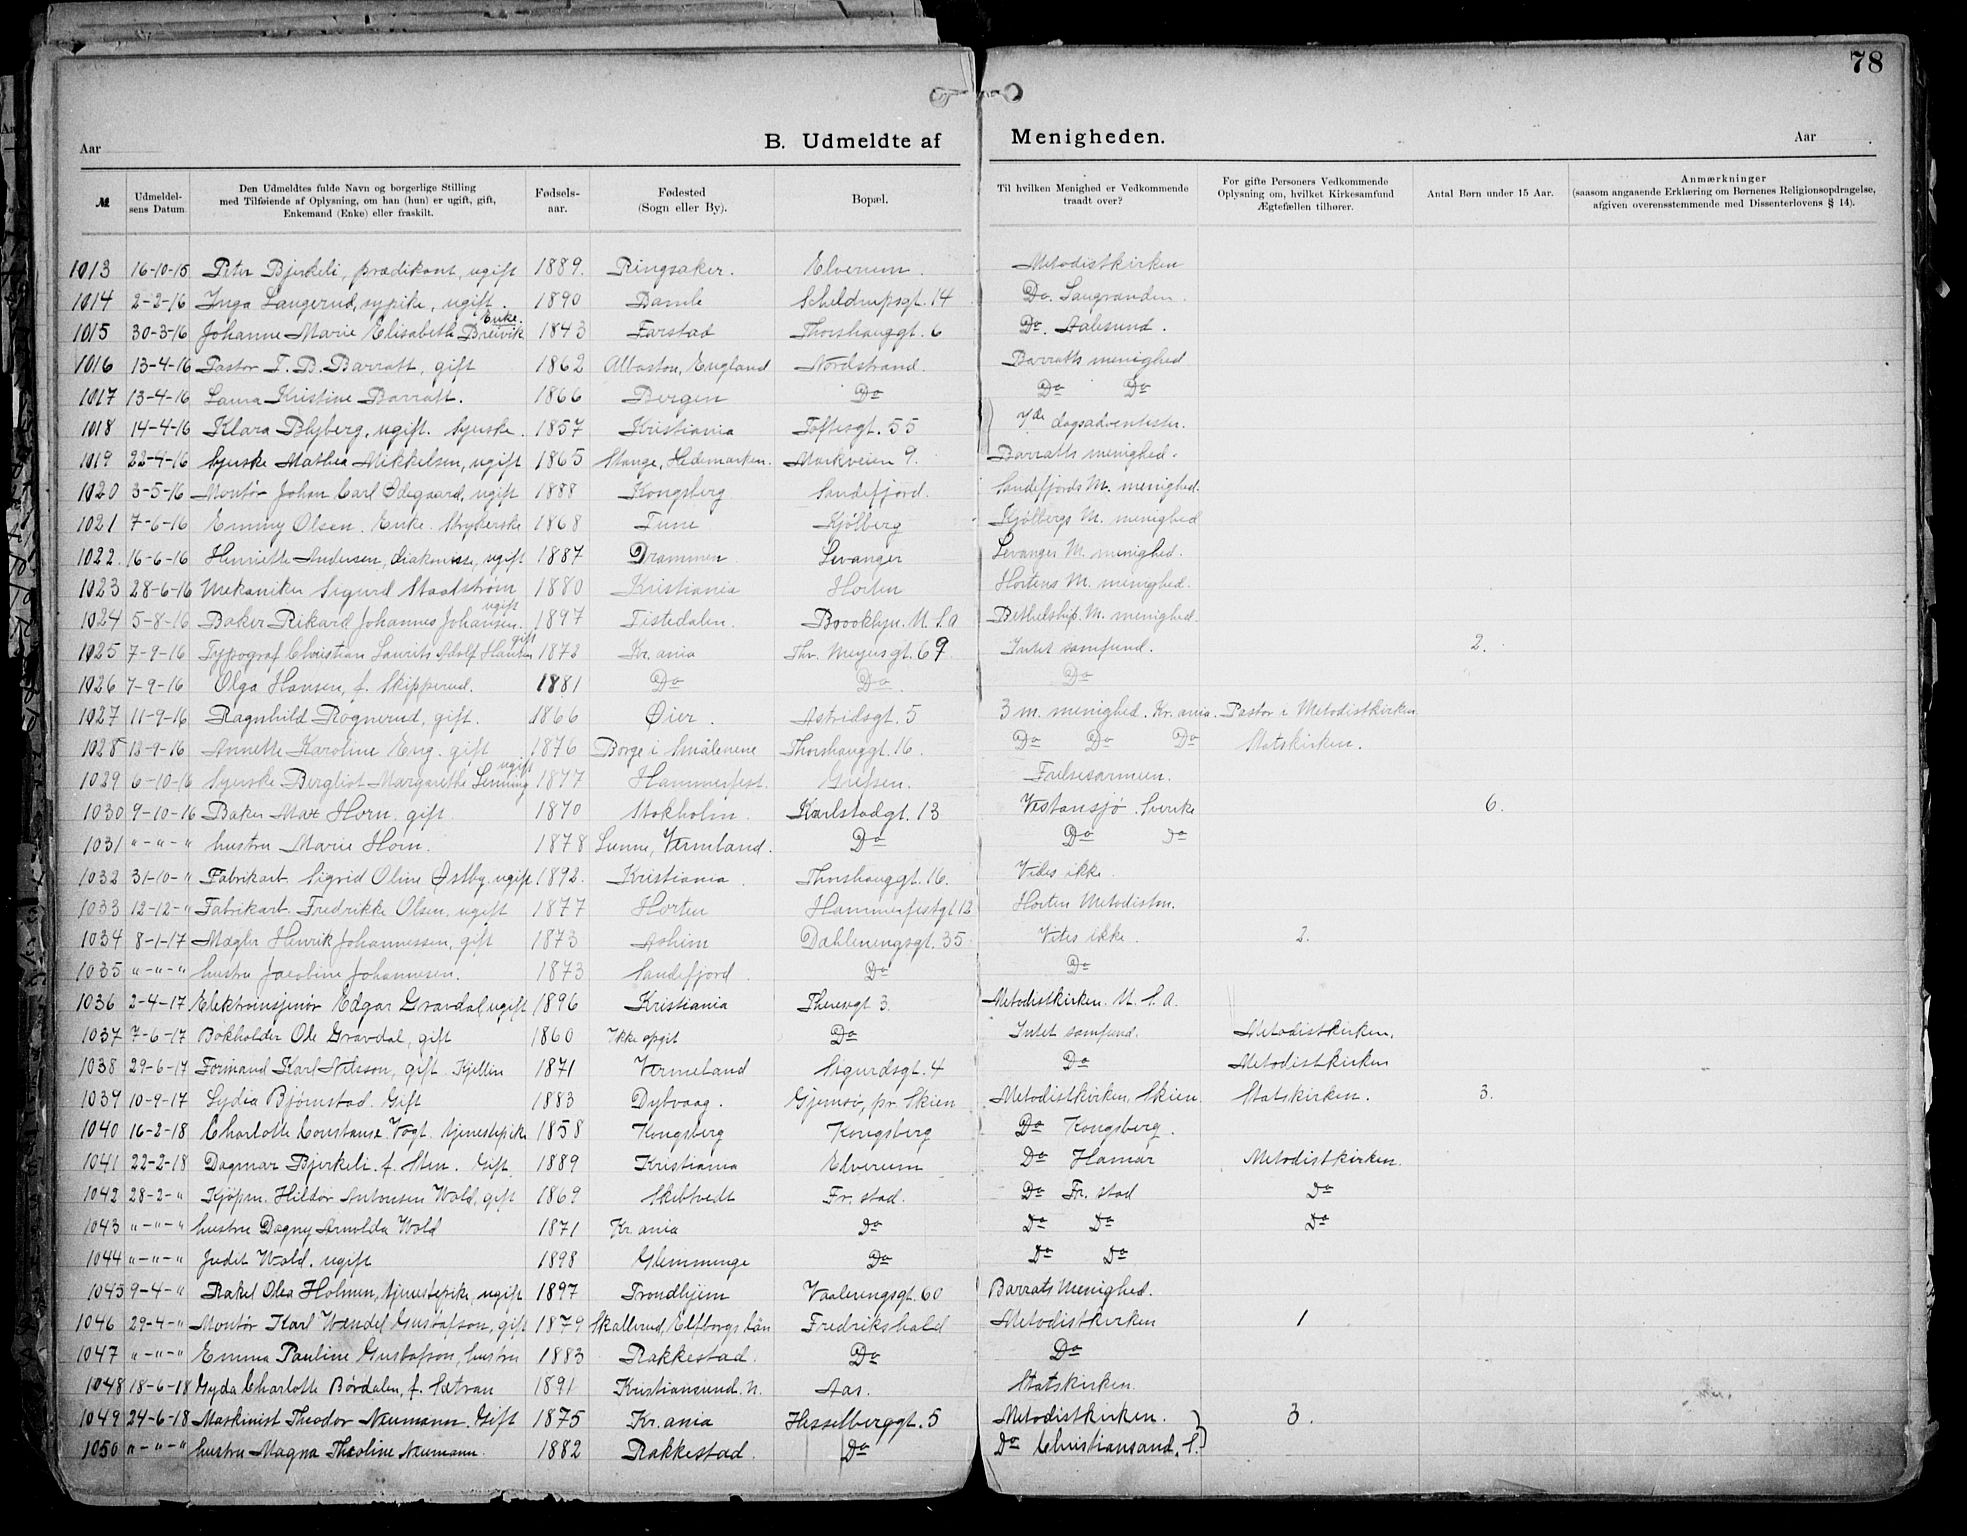 78
Aar B. Udmeldte af Menigheden. Aar
№ | Udmeldelsens Datum | Den Udmeldtes fulde Navn og borgerlige Stilling med Tilføiende af Oplysning, om han (hun) er ugift, gift, Enkemand (Enke) eller fraskilt. | Fødselsaar. | Fødested (Sogn eller By). | Bopæl. | Til hvilken Menighed er Vedkommende traadt over? | For gifte Personers Vedkommende Oplysning om, hvilket Kirkesamfund Ægtefællen tilhører. | Antal Børn under 15 Aar. | Anmærkninger (saasom angaaende Erklæring om Børnenes Religionsopdragelse, afgiven overensstemmende med Dissenterlovens § 14).
1013 16-10-15 Peter Bjerkeli, prædikant, ugift 1889. Ringsaker. Elverum. Metodistkirken
1014 2-2-16 Inga Langerud, sypike, ugift. 1890 Bamle Schildrupsgt. 14 Do. Langranden.
1015 30-3-16 Johanne Marie Elisabeth Breivik Enke. 1843 Farstad Thorshauggt. 6 Do. Aalesund.
1016 13-4-16 Pastor T. B. Barratt, gift 1862 Albaston, England Nordstrand. Barratts menighed
1017 13-4-16 Laura Kristine Barratt. 1866 Bergen Do Do Do
1018 14-4-16 Klara Blyberg, ugift. Syerske. 1857 Kristiania Toftesgt. 55 7de dagsadventister.
1019 22-4-16 Syerske Mathea Mikkelsen, ugift 1865 Stange, Hedemarken. Markveien 9. Barratts menighed.
1020 3-5-16 Montør Johan Carl Ødegaard, ugift 1888 Kongsberg Sandefjord. Sandefjords M. menighed.
1021 7-6-16 Emmy Olsen. Enke. Strykerske 1868 Tune Kjølberg Kjølbergs M. menighed
1022. 16-6-16 Henriette Andersen, diakonisse, ugift 1887 Drammen Levanger Levanger M. menighed.
1023 28-6-16 Mekaniker Sigurd Staalstrøm 1880 Kristiania Horten Hortens M. menighed.
1024 5-8-16 Baker Rikard Johannes Johansen. ugift 1897 Tistedalen. Brooklyn. U. S. A Bethelship. M. menighed.
1025 7-9-16 Typograf Christian Laurits Adolf Hansen gift 1872 Kr.ania Thv. Meyersgt. 69 Intet samfund. 2.
1026 7-9-16 Olga Hansen, f. Skipperud. 1881 Do Do. Do
1027 11-9-16 Ragnhild Røgnerud, gift. 1866 Øier. Astridsgt. 5 3 m. menighed. Kr.ania. Pastor i Metodistkirken
1028 12-9-16 Annette Karoline Eng. gift 1876 Borge i Smålenene Thorshauggt. 16. Do Do Do Statskirken.
1029 6-10-16 Syerske Bergliot Margarethe Lenning ugift 1877 Hammerfest. Grefsen. Frelsesarmeen.
1030 9-10-16 Baker Max Horn. gift. 1870 Stokholm. Karlstadgt. 13 Vestansjø. Sverike 6.
1031 "-"-" hustru Marie Horn. 1878 Sunne, Vermland. Do Do do
1032 31-10-" Fabrikarb. Sigrid Oline Østby. ugift 1892. Kristiania. Thorshauggt. 16. Vides ikke.
1033 12-12-" Fabrikarb. Fredrikke Olsen, ugift 1877 Horten Hammerfestgt 12 Horten Metodistm.
1034 8-1-17 Mægler Henrik Johannessen, gift 1873 Askim Dæhleningsgt. 35. Vites ikke. 2.
1035 "-"-" hustru Jacobine Johannesen. 1873 Sandefjord. Do Do
1036 2-4-17 Elektroinsjenør Edgar Gravdal, ugift 1896 Kristiania Theresgt 3. Metodistkirken. U. S. A.
1037 7-6-17 Bokholder Ole Gravdal, gift 1860 Ikke opgit Do Intet samfund. Metodistkirken.
1038 29-6-17 Formand Karl Nilsson, gift. Kjellin 1871 Vermeland Sigurdsgt. 4 Do Metodistkirken
1039 10-9-17 Lydia Bjørnstad. Gift 1883 Dybvaag. Gjemsø, pr. Skien Metodistkirken, Skien. Statskirken. 3.
1040 16-2-18 Charlotte Constanse Vogt. tjenestepike 1858 Kongsberg Kongsberg Do Kongsberg.
1041 22-2-18 Dagmar Bjerkeli. f. Sten. Gift. 1889 Kristiania Elverum Do Hamar Metodistkirken.
1042 28-2-" Kjøpm. Hildor Antonsen Wold, gift 1869 Skibtvedt Fr. stad. Do Fr. stad Do
1043 "-"-" hustru Dagny Arnolda Wold 1871 Kr.ania do Do Do Do
1044 "-"-" Judit Wold. ugift 1898 Glemminge Do Do Do
1045 9-4-" Rakel Olea Holmen, tjenestepike, ugift 1897 Trondhjem Vaaleringsgt. 60 Barrats Menighed.
1046 29-4-" Montør Karl Wendel Gustafson, gift 1879 Skallerud, Elfborgs län Fredrikshald Metodistkirken 1
1047 "-"-" Emma Pauline Gustafson, hustru 1883 Rakkestad. Do Do
1048 18-6-18 Gyda Charlotte Børdalen, f. Sætran 1891 Kristiansund. N. Aas. Statskirken.
1049 24-6-18 Maskinist Theodor Neumann. Gift 1875 Kr.ania Hesselberggt. 5 Metodistkirken. 3.
1050 "-"-" hustru Magna Theoline Neumann. 1882 Rakkestad Do Do Christiansand. S.